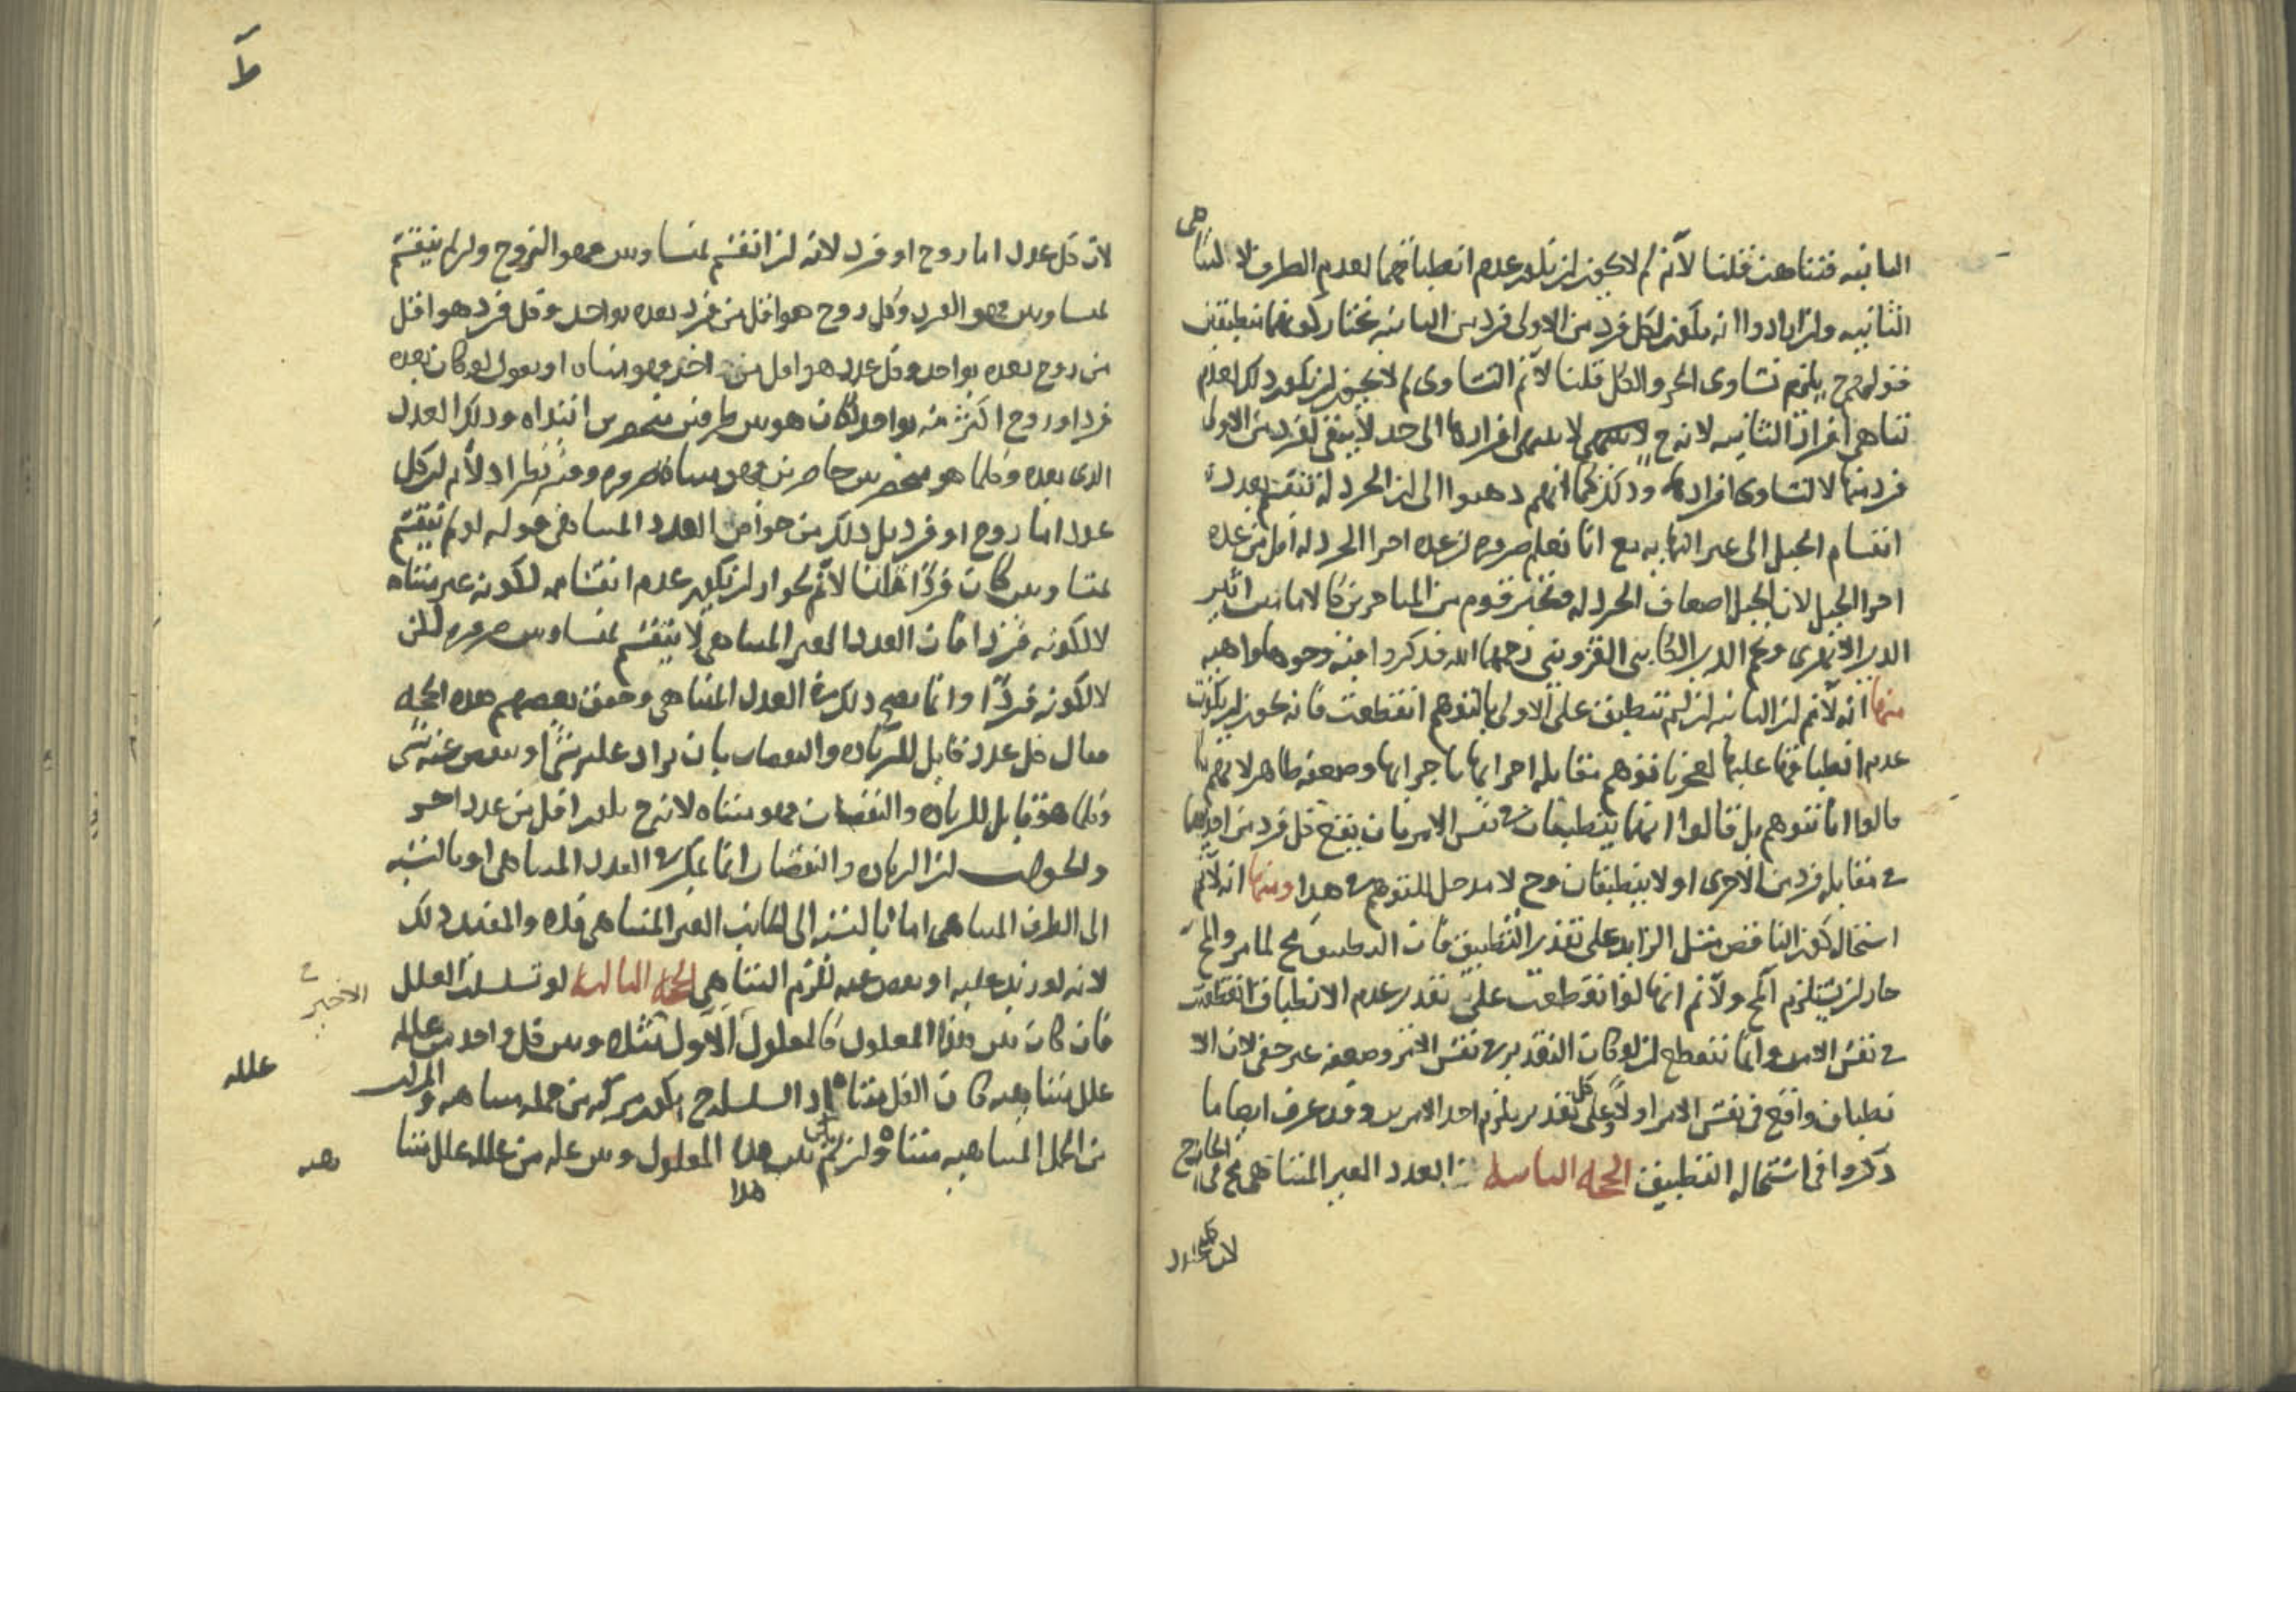 الثانية فتناهت قلنا لا نم لم لا يجوز ان يكون عدم انطباقهما لعدم الطرف لا لتناهى
الثانية وان ارادوا انه يكون لكل فرد من الاولى فرد من الثانية نختار كونهما منطبقين
قوله ح يلزم تساوى الجزو الكل قلنا لا نم التساوى لم لا يجوز ان يكون ذلك لعدم
تناهى افراد الثانية لانه ح لا ينتهى افرادها الى حد لا يبقى لفرد من الاولى
فرد منها لا لتساوى افرادها وذلك كما انهم ذهبوا الى ان الخردلة تنقسم بعدد
انقسام الجبل الى غير النهاية مع انا نعلم ضرورة ان عدد اجزا الخردلة اقل من عدد
اجزا الجبل لان الجبل اضعاف الخردلة فتحير قوم من المتاخرين كالامامين اثير
الدين الابهرى ونجم الدين الكاتبى القزوينى رحمهما الله فذكروا فيه وجوها واهية
منها انه لا نم ان الثانية ان لم تنطبق على الاولى بالتوهم انقطعت فانه يجوز ان يكون
عدم انطباقها عليها لعجزنا فتوهم مقابلة اجزائها باجزائها وضعفه ظاهر لانهم ما
قالوا انا نتوهم بل قالوا انهما ينطبقان فى نفس الامر بان يقع كل فرد من احديهما
فى مقابلة فرد من الاخرى او لا ينطبقان وح لا مدخل للتوهم فى هذا ومنها انه لا نم
استحالة كون الناقص مثل الزايد على تقدير التطبيق فان التطبيق مح لما مر والمح
جاز ان يستلزم المح ولا نم انها لو انقطعت على تقدير عدم الانطباق انقطعت
فى نفس الامر وانما تنقطع ان لو كان التقدير فى نفس الامر وضعفه غير خفى لان الا
نطباق واقع فى نفس الامر او لا وعلى كل تقدير يلزم احد الامرين وقد عرف ايضا ما
ذكروا فى استحالة التطبيق الحجة الثانية العدد الغير المتناهى مح فى الخارج
لان كل عدد
لان كل عدد اما زوج او فرد لانه ان انقسم بمتساويين فهو الزوج وان لم ينقسم
بمتساويين فهو الفرد وكل زوج هو اقل من فرد بعده بواحد وكل فرد هو اقل
من زوج بعده بواحد وكل عدد هو اقل من اخر فهو متناه او نقول لو كان بعده
فرد او زوج اكثر منه بواحد لكان هو بين طرفين منحصرين ابتداه وذلك العدد
الذى بعده وكلما هو منحصر بين حاصرين فهو متناه ضرورة وفيه نظر اذ لا نم ان كل
عدد اما زوج او فرد بل ذلك من خواص العدد المتناهى قوله لو لم ينقسم
بمتساويين كان فردا قلنا لا نم لجواز ان يكون عدم انقسامه لكونه غير متناه
لا لكونه فردا فان العدد الغير المتناهى لا ينقسم بمتساويين ضرورة لكن
لا لكونه فردا وانما يصح ذلك فى العدد المتناهى وحقق بعضهم هذه الحجة
فقال كل عدد قابل للزيادة والنقصان بان يزاد عليه شئ او ينقص عنه شئ
وكلما هو قابل للزيادة والنقصان فهو متناه لانه ح يكون اقل من عدد اخر
والجواب ان الزيادة والنقصان انما يمكن فى العدد المتناهى او بالنسبة
الى الطرف المتناهى اما بالنسبة الى الجانب الغير المتناهى فلا والمفيد ذلك
لانه لو زيد عليه او نقص عنه لزم التناهى الحجة الثالثة لو تسلسل العلل
الاخير
فان كان بين هذا المعلول كالمعلول الاول مثلا وبين كل واحد من علله
علل متناهية كان الكل متناه اذ السلسلة ح يكون مركبة من جملة متناهية والمركب
علله
من الجمل المتناهية متناه وان لم يكن بين هذا المعلول وبين علة من علله علل متنا
هية
هذا
ط